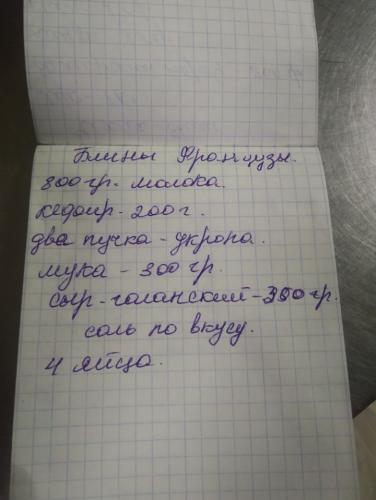 Блины Французы.
800 гр. молока.
кефир - 200 г.
два пучка - укропа.
мука - 300 гр.
сыр - голанский - 350 гр.
соль по вкусу.
4 яйца.